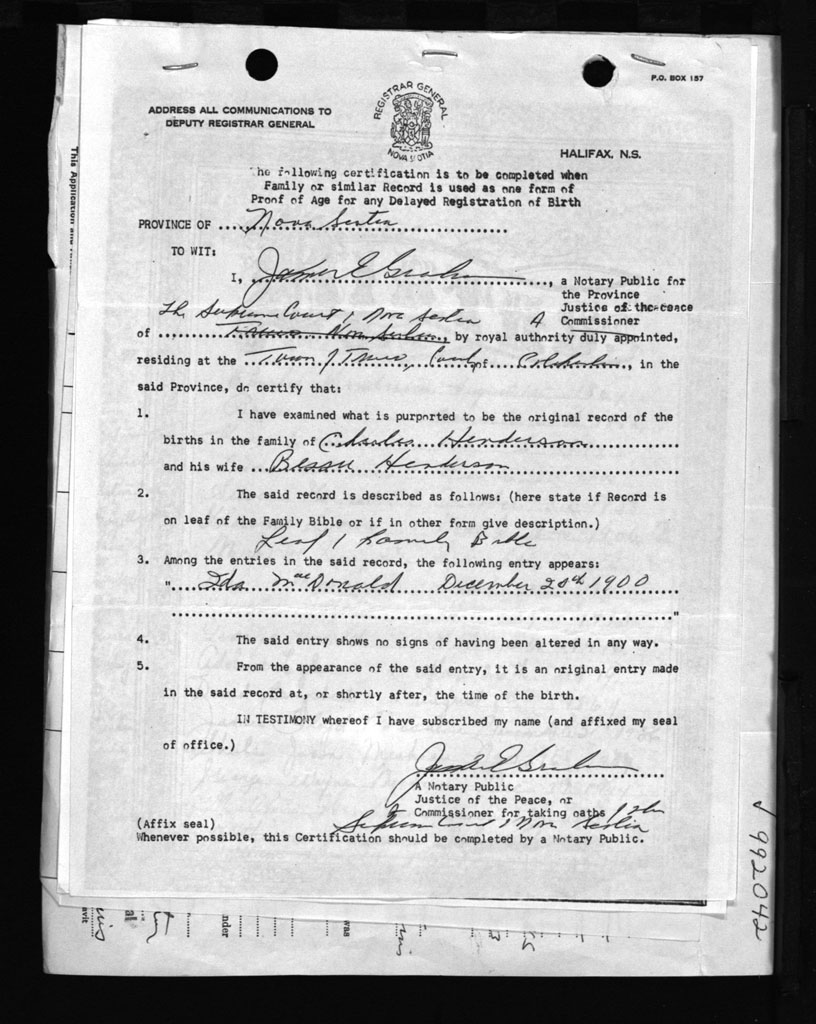 P.O. BOX 157
REGISTRAR GENERAL
NOVA SCOTIA
ADDRESS ALL COMMUNICATIONS TO
DEPUTY REGISTRAR GENERAL
HALIFAX, N.S.
The following certification is to be completed when
Family or similar Record is used as one form of
Proof of Age for any Delayed Registration of Birth
PROVINCE OF Nova Scotia
TO WIT:
I, James E Graham, a Notary Public for
the Province
Justice of the Peace
The Supreme Court, Nova Scotia A Commissioner
of Truro Nova Scotia, by royal authority duly appointed,
residing at the Town of Truro, County of Colchester, in the
said Province, do certify that:
1. I have examined what is purported to be the original record of the
births in the family of Charles Henderson
and his wife Bessie Henderson
2. The said record is described as follows: (here state if Record is
on leaf of the Family Bible or if in other form give description.)
Leaf of Family Bible
3. Among the entries in the said record, the following entry appears:
" Ida MacDonald December 20th 1900
"
4. The said entry shows no signs of having been altered in any way.
5. From the appearance of the said entry, it is an original entry made
in the said record at, or shortly after, the time of the birth.
IN TESTIMONY whereof I have subscribed my name (and affixed my seal
of office.)
James E Graham
A Notary Public
Justice of the Peace, or
Commissioner for taking oaths in the
(Affix seal) Supreme Court of Nova Scotia
Whenever possible, this Certification should be completed by a Notary Public.
This Application and
992042
nder
was